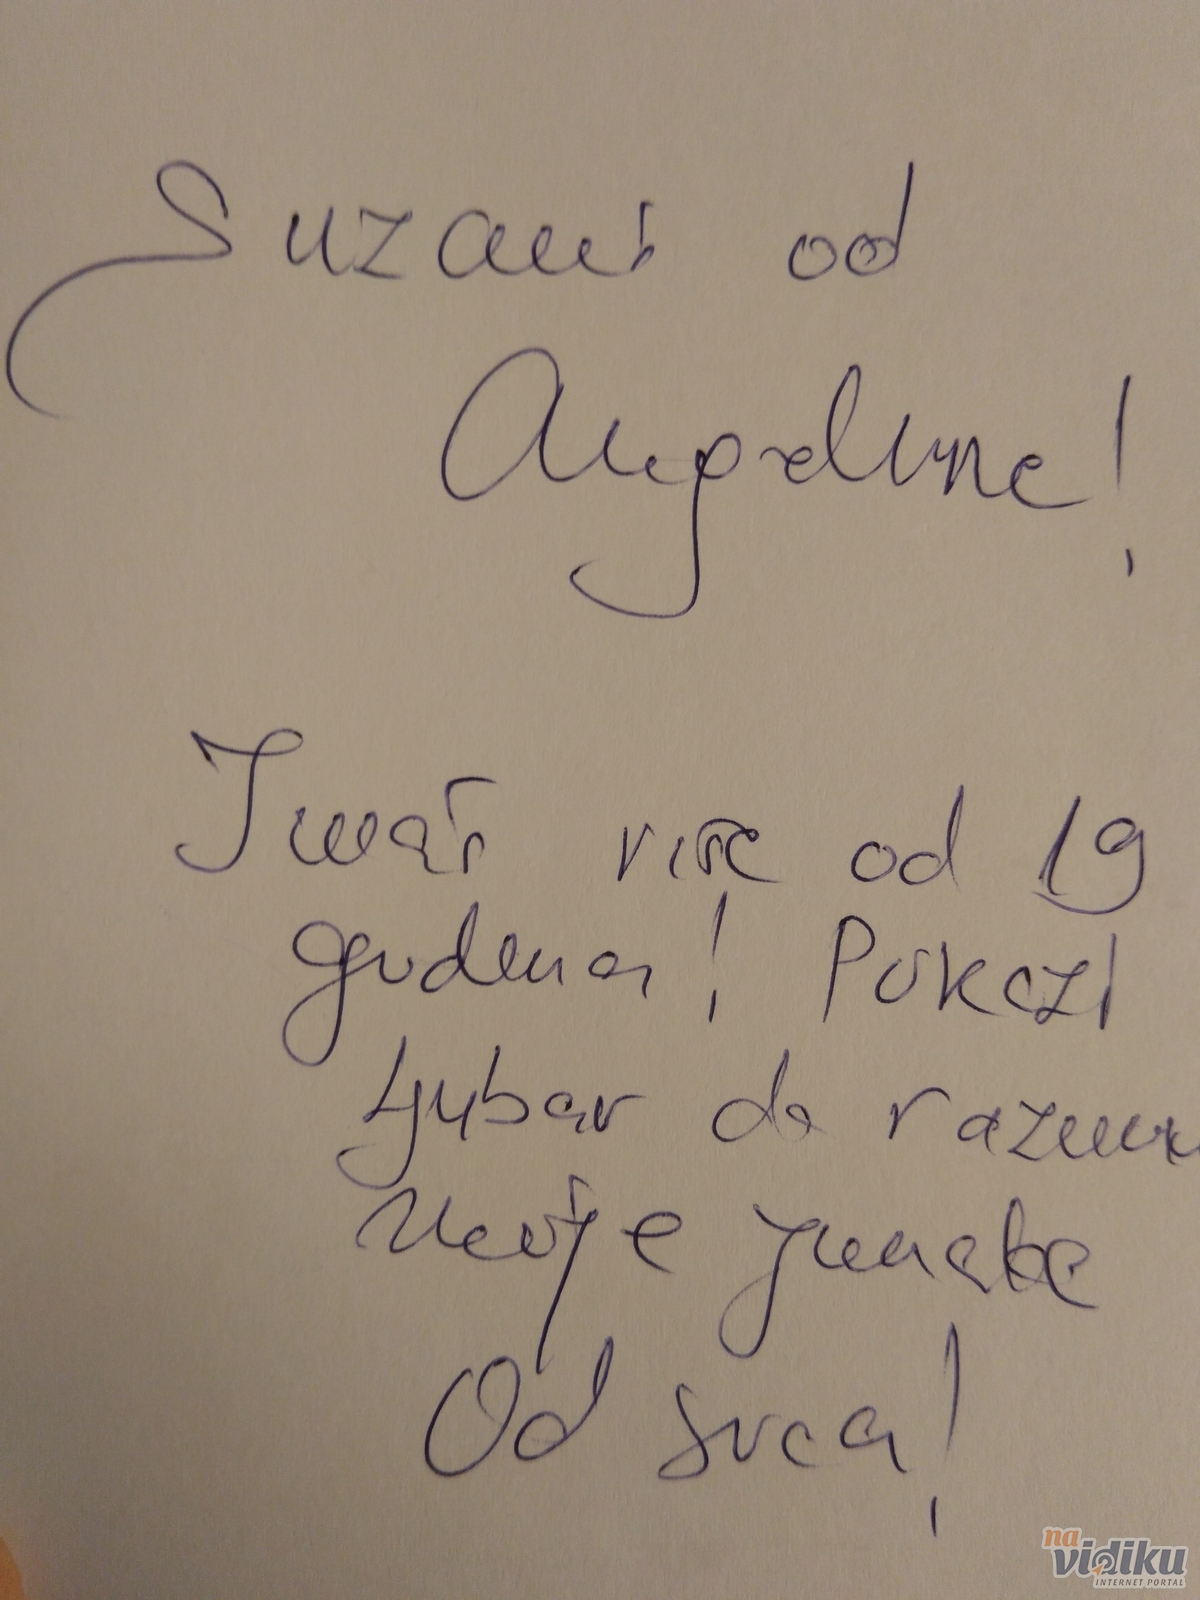 Suzani od
Angeline!
Imaš više od 19
godina! Pokaži
ljubav da razum
Moje junake
Od srca!
na
vidiku
INTERNET PORTAL